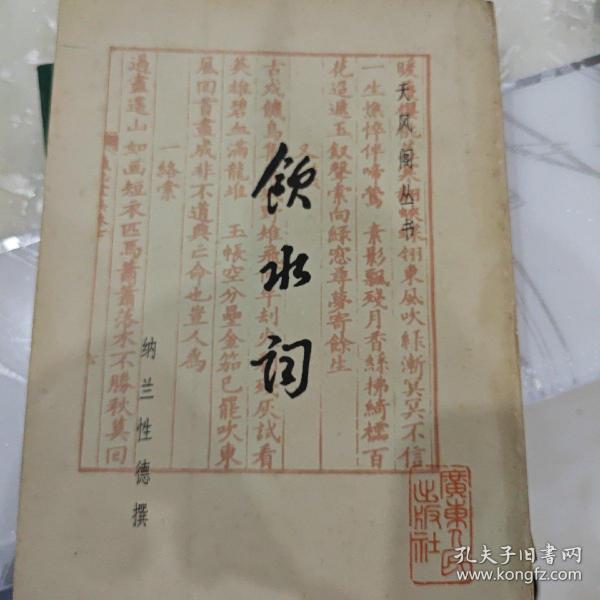 天风阁丛书
飲水词
纳兰性德撰
一生憔悴伴啼鶯 素影飄殘月香絲拂綺櫺百
花迢遞玉釵聲索向綠窓尋夢寄餘生
古戍饑烏集
雄飛
英雄碧血滿龍堆 玉帳空分壘金笳已罷吹東
風回首盡成非不道興亡命也豈人爲
一絡索
過盡遥山如画短衣匹馬蕭蕭落木不勝秋莫回
廣東人民
出版社
孔夫子旧書网
www.kongfz.com